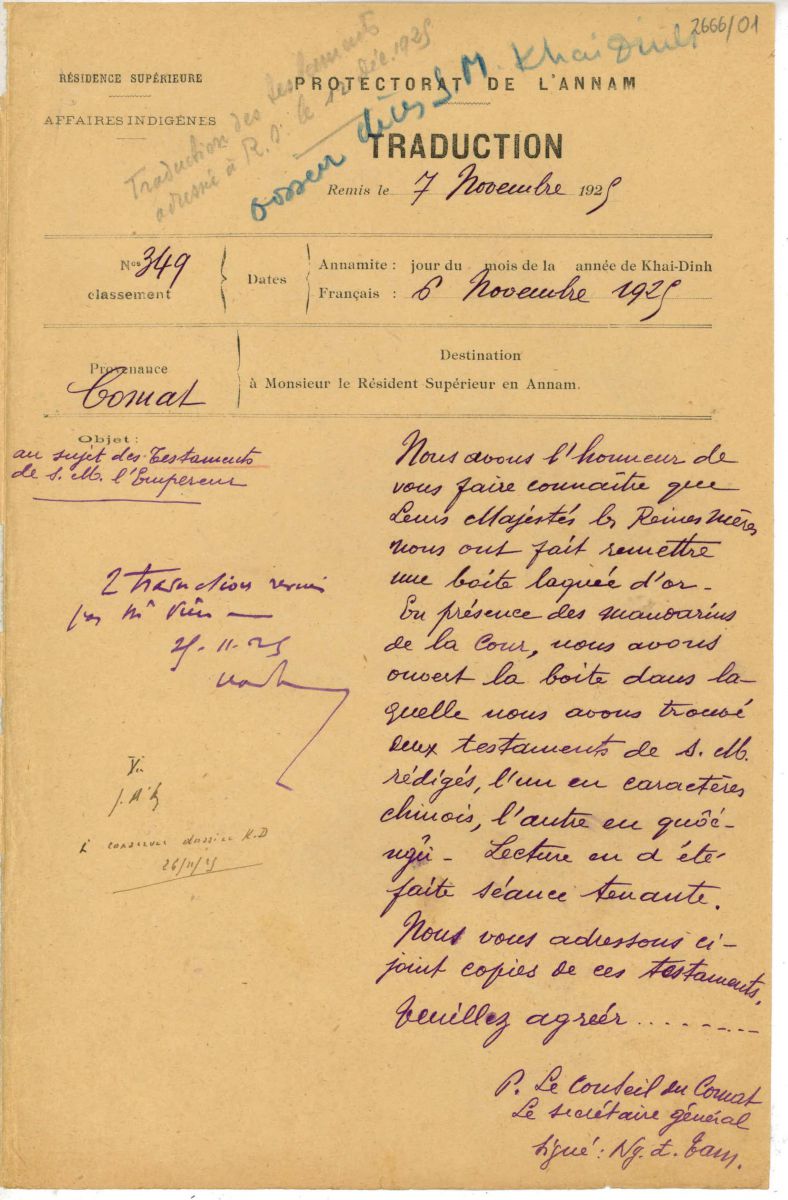 2666/01
RÉSIDENCE SUPÉRIEURE
AFFAIRES INDIGÈNES
Traduction des testaments
adressée à R. S. le 12 déc. 1925
dossier décès S. M. Khai Dinh
PROTECTORAT DE L'ANNAM
TRADUCTION
Remis le 7 Novembre 1925
Nos 349
classement
Dates
Annamite : jour du mois de la année de Khai-Dinh
Français : 6 Novembre 1925
Provenance
Comat
Destination
à Monsieur le Résident Supérieur en Annam.
Objet :
au sujet des Testaments
de S. M. l'Empereur
2 traductions
par
25-11-25
à conserver dossier K.D
26/11/25
Nous avons l'honneur de
vous faire connaître que
Leurs Majestés les Reines mères
nous ont fait remettre
une boite laquée d'or -
En présence des mandarins
de la Cour, nous avons
ouvert la boite dans la-
quelle nous avons trouvé
deux testaments de S. M.
rédigés, l'un en caractères
chinois, l'autre en quôc-
ngû - Lecture en a été
faite séance tenante.
Nous vous adressons ci-
joint copies de ces testaments.
Veuillez agréer ........
P. Le Conseil du Comat
Le secrétaire général
Signé : Ng. d. Tam.